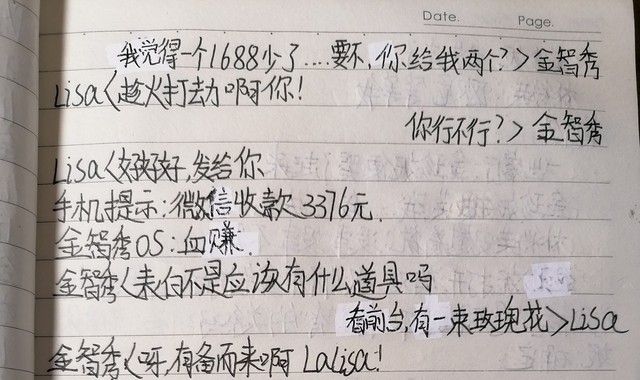 Date. Page.
我觉得一个1688少了....要不,你给我两个?>金智秀
Lisa<趁火打劫啊你!
你行不行?>金智秀
Lisa<好好好,发给你
手机提示:微信收款3376元.
金智秀OS:血赚.
金智秀<表白不是应该有什么道具吗
看前台,有一束玫瑰花>Lisa
金智秀<呀,有备而来啊 Lalisa!